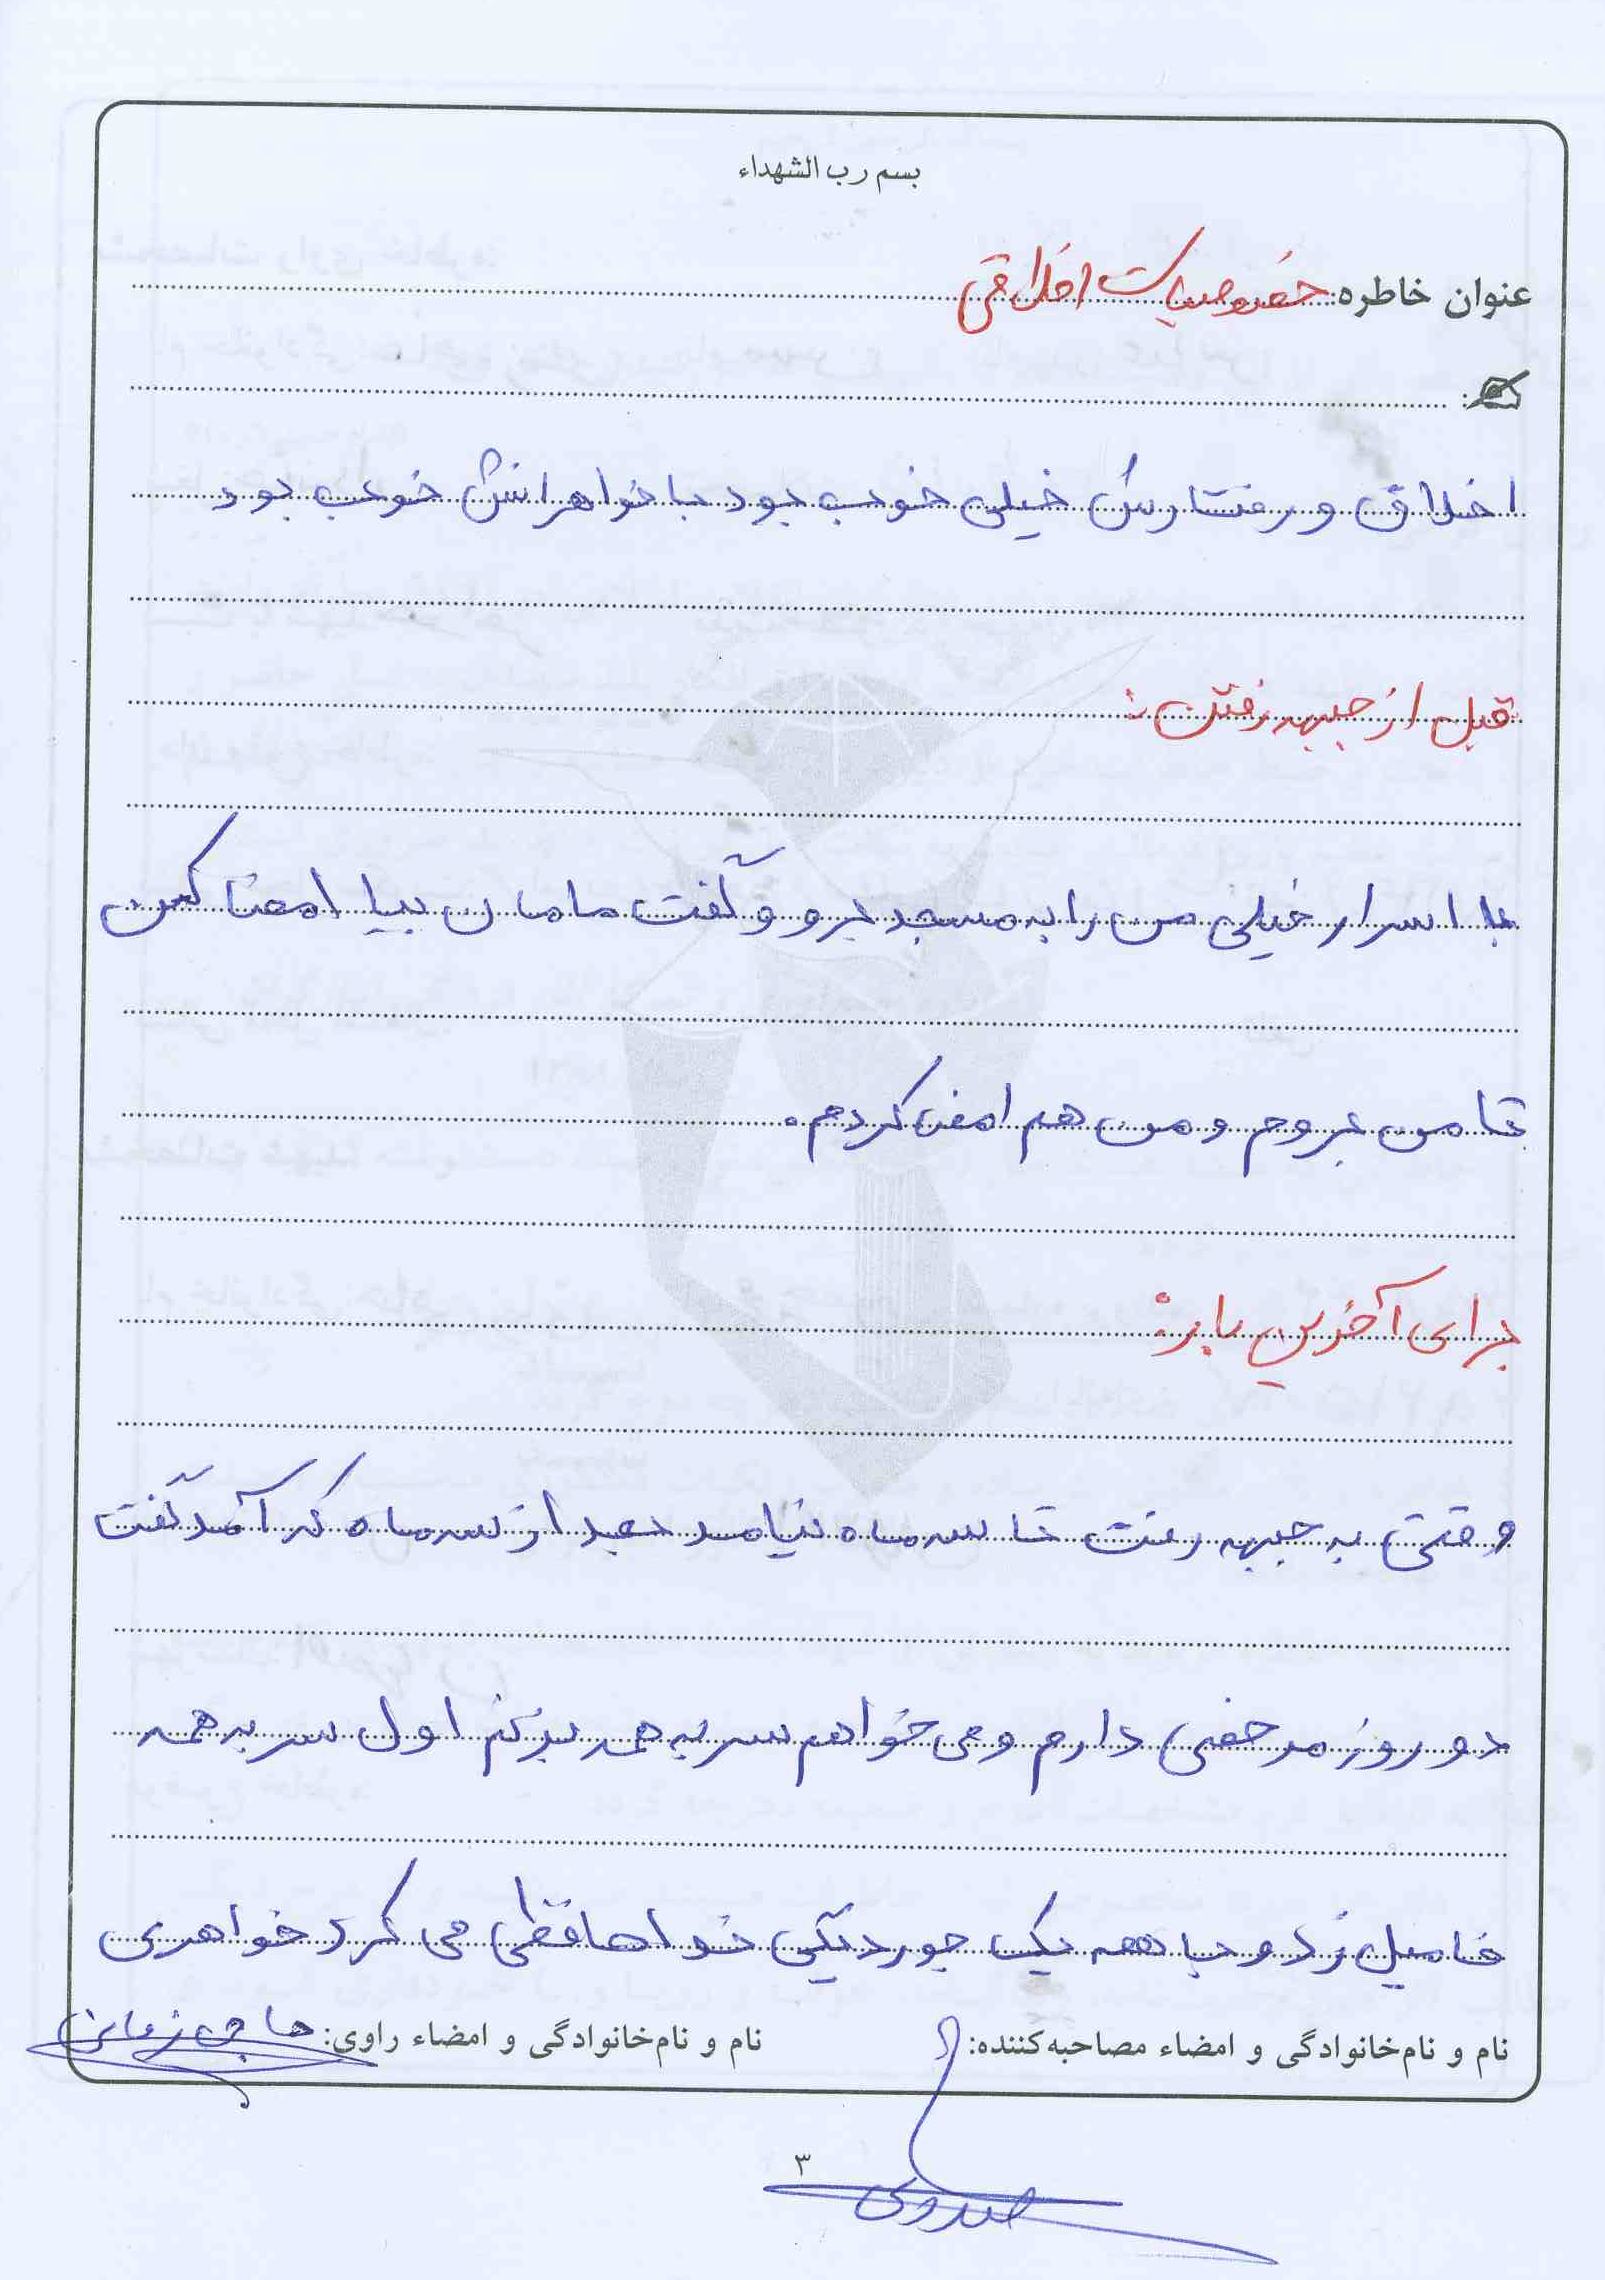 بسم رب الشهداء
عنوان خاطره: خصوصیات اخلاقی
اخلاق و رفتارش خیلی خوب بود با خواهرانش خوب بود
قبل از جبهه رفتن:
با اسرار خیلی من را به مسجد برد و گفت مامان بیا امضا کن
تا من بروم و من هم امضا کردم.
برای آخرین بار:
وقتی به جبهه رفت تا سه ماه نیامد بعد از سه ماه که آمد گفت
دو روز مرخصی دارم و می خواهم سر به همه بزنم اول سر به همه
فامیل زد و با همه یک جور دیگی خداحافظی می کرد خواهری
نام و نام‌خانوادگی و امضاء مصاحبه‌کننده: نام و نام‌خانوادگی و امضاء راوی: حاجی زمانی
۳